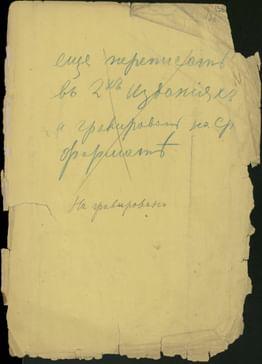 еще переписать
въ 2хъ изданіяхъ
и гравировать на ср
форматѣ
На гравировано